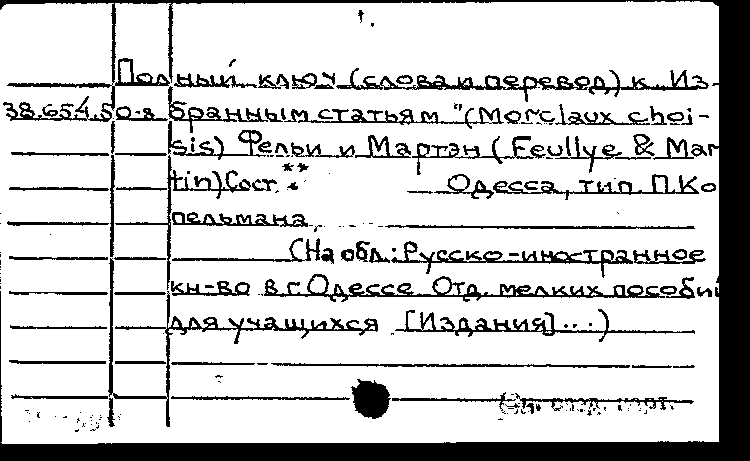 1.
Полный ключ (слова и перевод) к Из-
38.654.50-8 бранным статьям "(Morclaux choi-
sis) Фельи и Мартэн (Feullye & Mar
tin) Сост. ** Одесса, тип. П.Ко
пельмана,
(На обл.: Русско-иностранное
кн-во в г.Одессе Отд. мелких пособий
для учащихся [Издания]...)